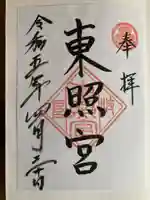 奉拝
東照宮
令和五年四月三十日